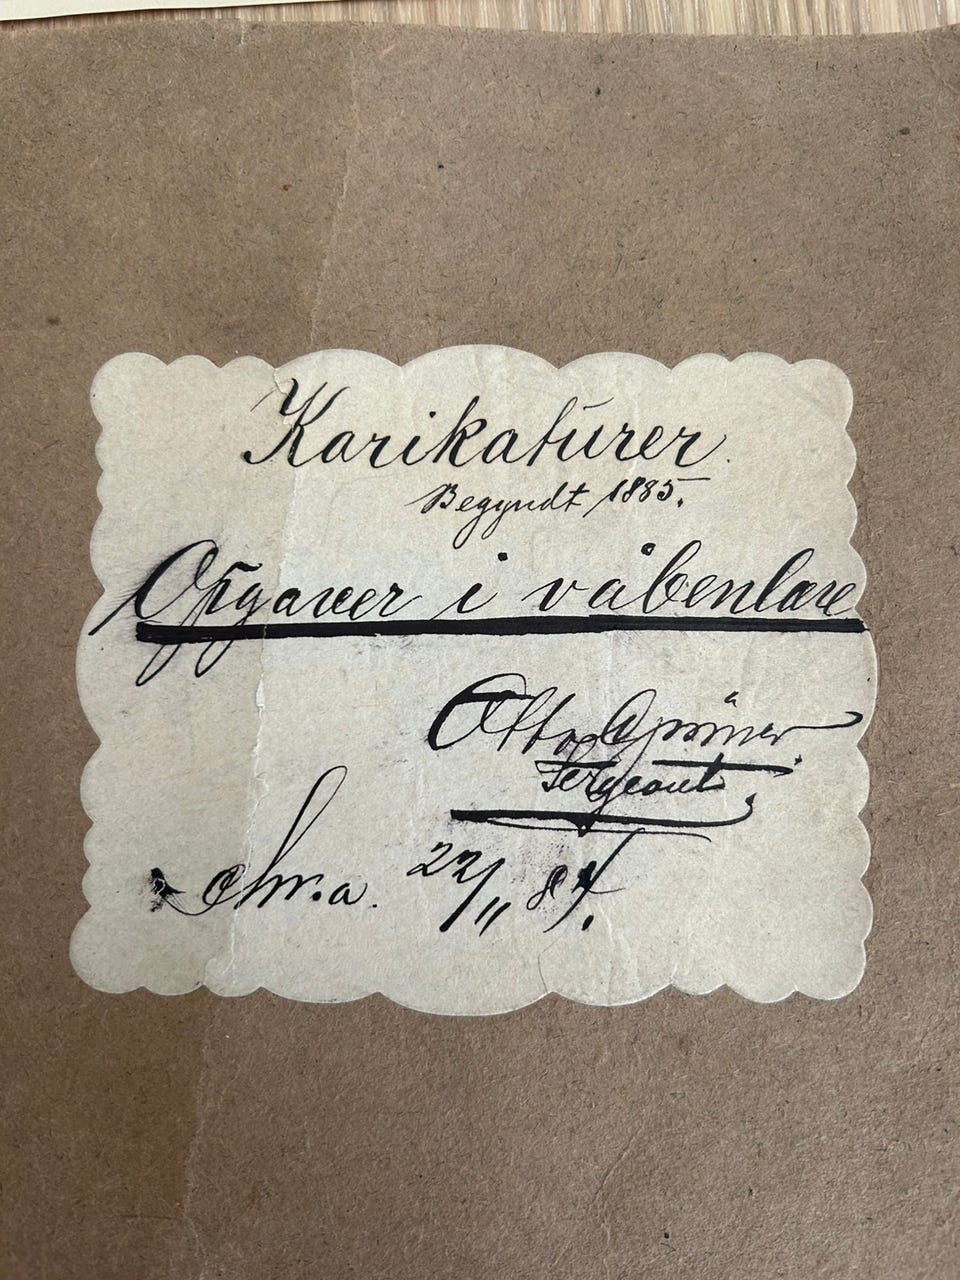 Karikatúrer.
Begyndt 1885.
Opgaver i våbenlære
Otto
Sergeant
Chr.a. 22/11 84.